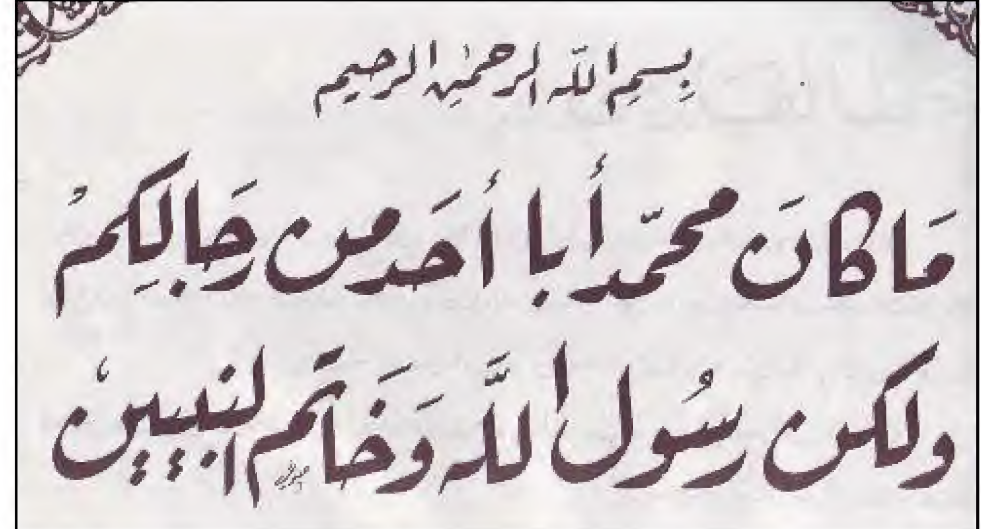 بِسمِ اللّه الرحمٰنِ الرحيم
مَا كانَ محمّد أَبا أحَد من رجَالِكمْ
ولكن رسُول اللَّه وَخَاتم النبيين